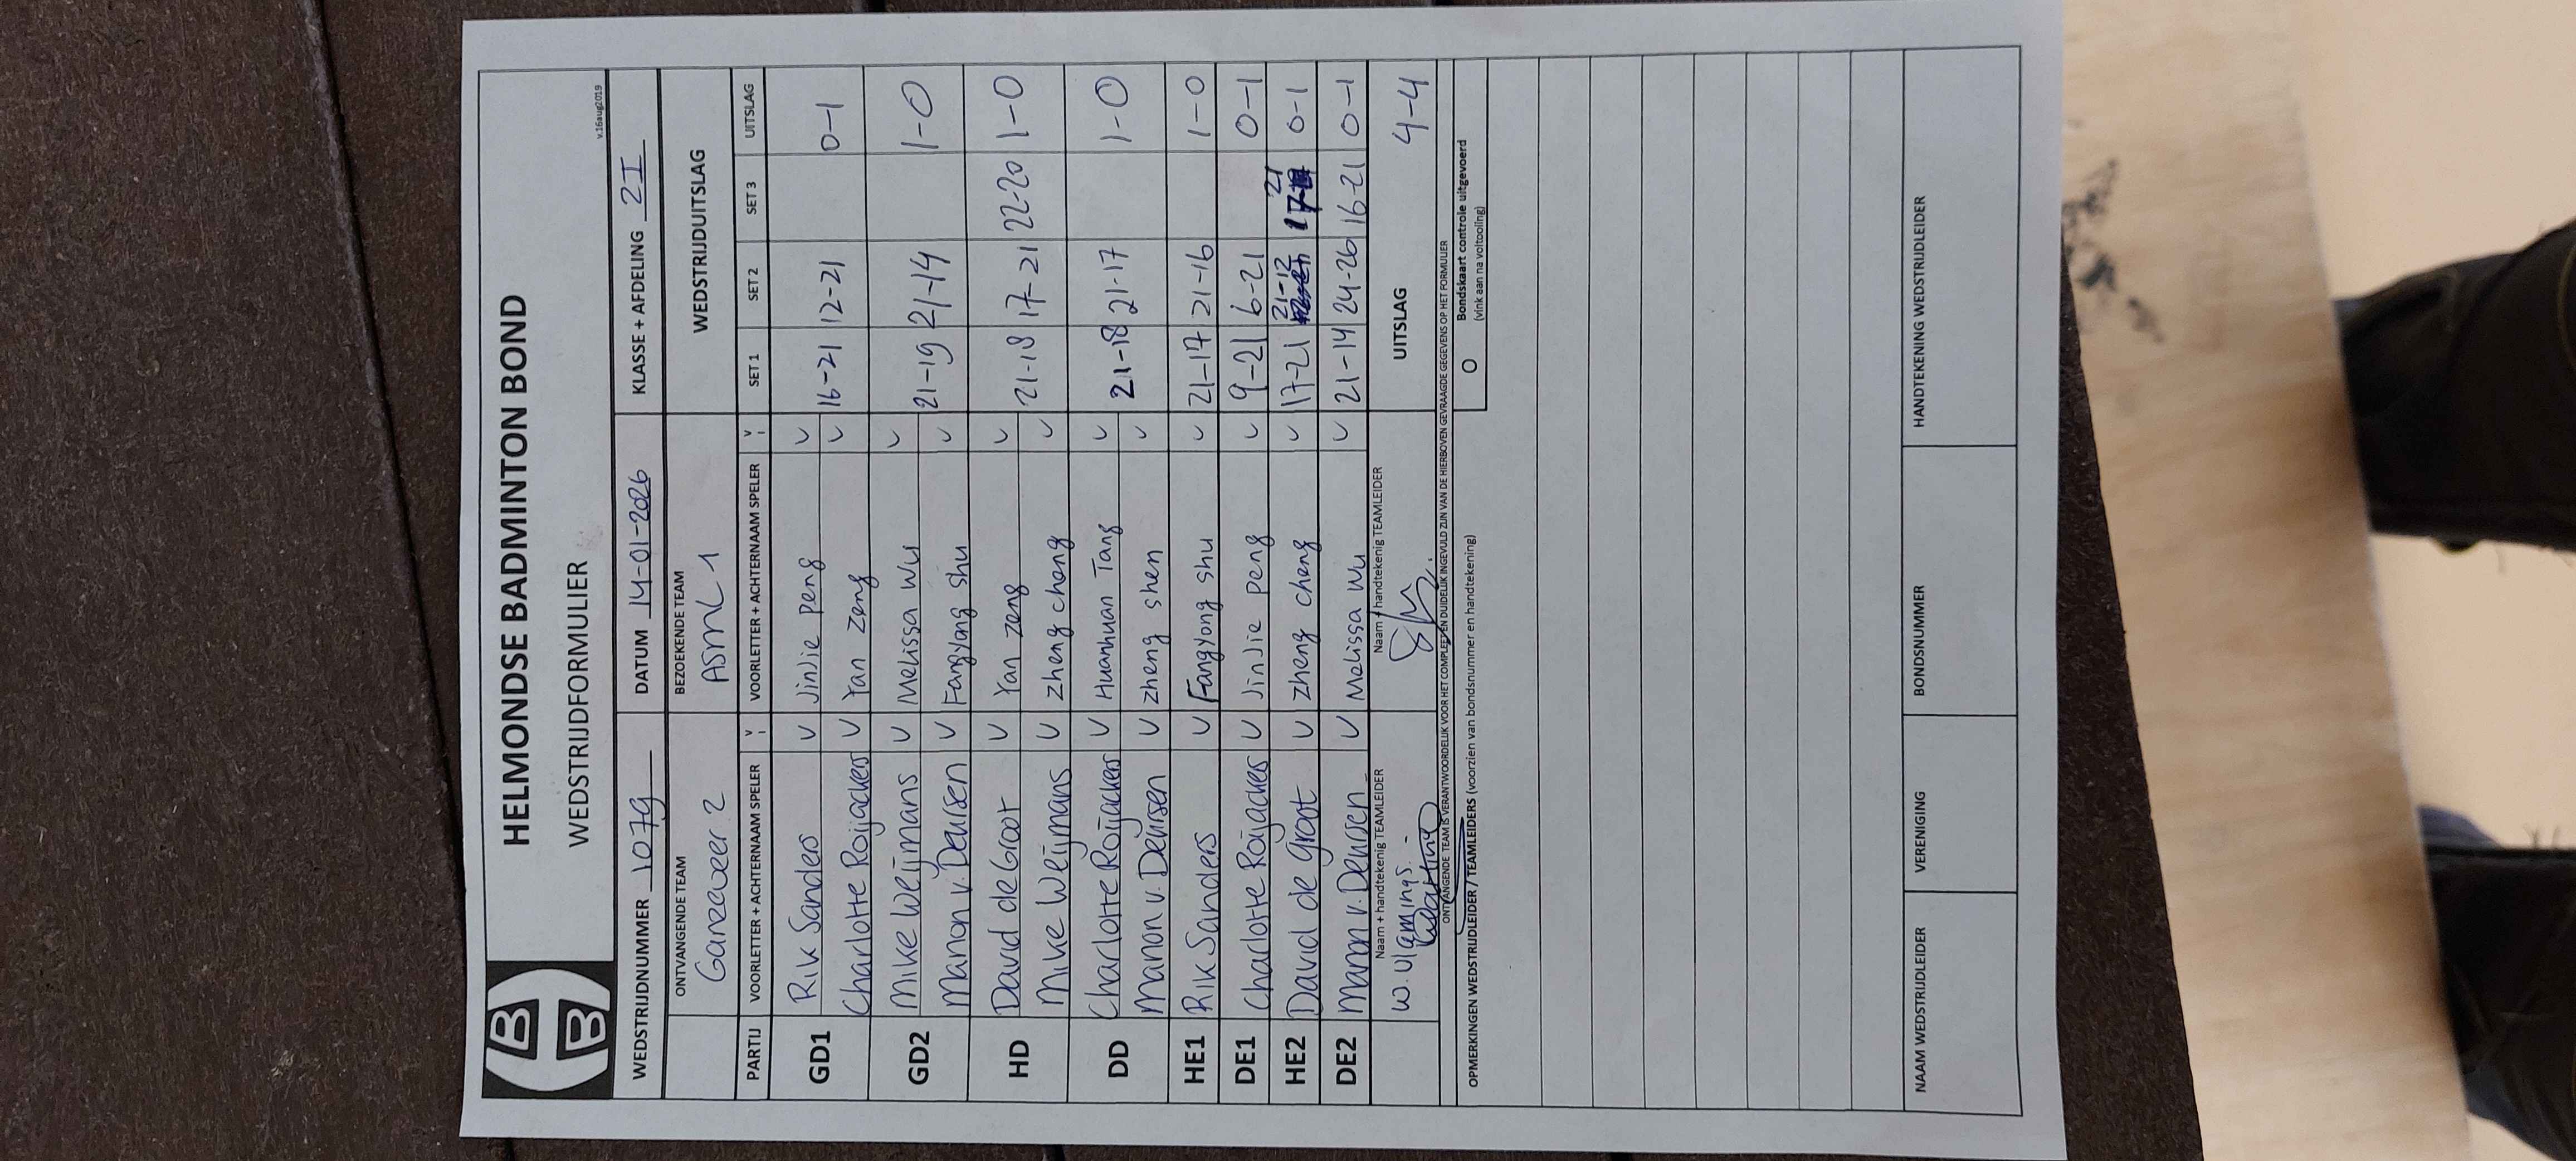 HELMONDSE BADMINTON BOND
WEDSTRIJDFORMULIER
v.16aug2019
WEDSTRIJDNUMMER 1079 DATUM 14-01-2026 KLASSE + AFDELING 2I
ONTVANGENDE TEAM BEZOEKENDE TEAM WEDSTRIJDUITSLAG
Ganzeveer 2 ASML 1
PARTIJ VOORLETTER + ACHTERNAAM SPELER V VOORLETTER + ACHTERNAAM SPELER V SET 1 SET 2 SET 3 UITSLAG
GD1 Rik Sanders V JinJie Peng V 16-21 12-21 0-1
Charlotte Roijackers V Yan Zeng V
GD2 Mike Weijmans V Melissa Wu V 21-19 21-14 1-0
Manon v. Deursen V Fangyong Shu V
HD David de Groot V Yan Zeng V 21-18 17-21 22-20 1-0
Mike Weijmans V Zheng Cheng V
DD Charlotte Roijackers V Huanhuan Tang V 21-18 21-17 1-0
Manon v. Deursen V Zheng Shen V
HE1 Rik Sanders V Fangyong Shu V 21-17 21-16 1-0
DE1 Charlotte Roijackers V JinJie Peng V 9-21 6-21 0-1
HE2 David de Groot V Zheng Cheng V 17-21 21-12 17-21 0-1
DE2 Manon v. Deursen V Melissa Wu V 21-14 24-26 16-21 0-1
Naam + handtekenig TEAMLEIDER Naam + handtekenig TEAMLEIDER UITSLAG 4-4
W. Vlamings
ONTVANGENDE TEAM IS VERANTWOORDELIJK VOOR HET COMPLEET EN DUIDELIJK INGEVULD ZIJN VAN DE HIERBOVEN GEVRAAGDE GEGEVENS OP HET FORMULIER
OPMERKINGEN WEDSTRIJDLEIDER / TEAMLEIDERS (voorzien van bondsnummer en handtekening)
O Bondskaart controle uitgevoerd
(vink aan na voltooiing)
NAAM WEDSTRIJDLEIDER VERENIGING BONDSNUMMER HANDTEKENING WEDSTRIJDLEIDER